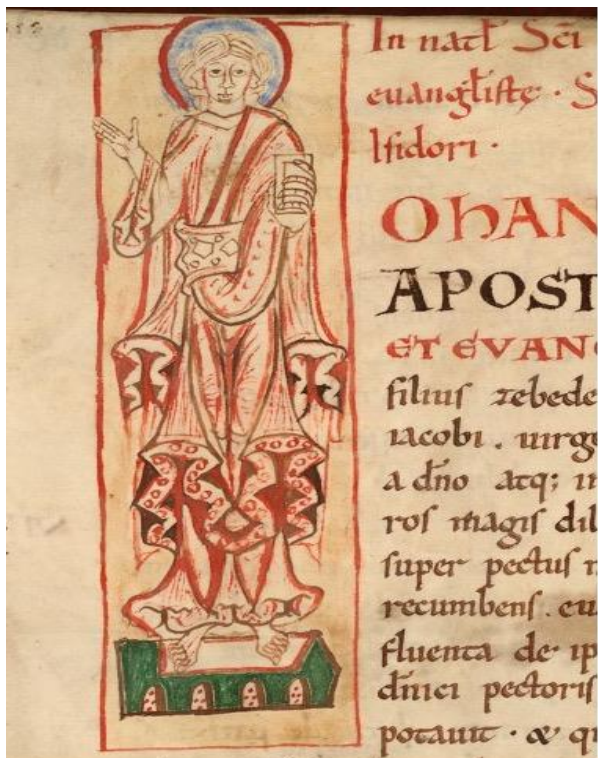 In natł Scī
euangłiste · S
Isidori ·
OHAN
APOST
ET EVAN
filius zebede
iacobi . uirgo
a dño atq; in
ros magis dil
super pectus
recumbens . eu
fluenta de ip
dñici pectoris
potauit · & q